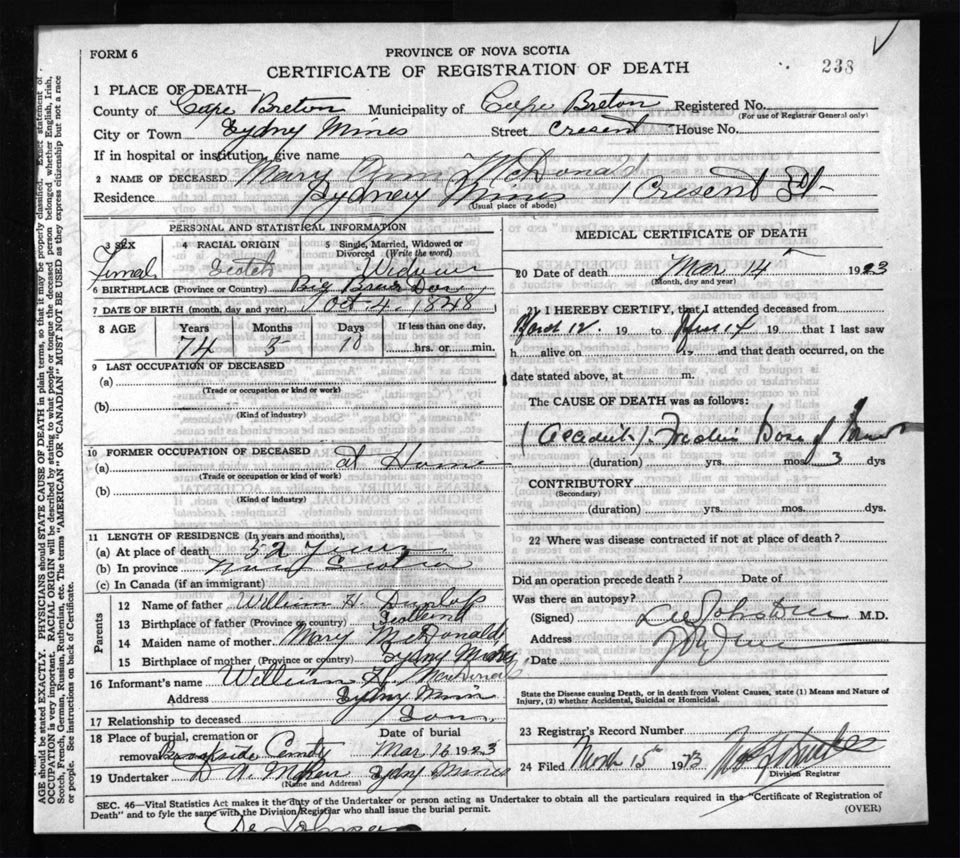 FORM 6
PROVINCE OF NOVA SCOTIA
CERTIFICATE OF REGISTRATION OF DEATH
238
1 PLACE OF DEATH—
County of Cape Breton Municipality of Cape Breton Registered No.
(For use of Registrar General only)
City or Town Sydny Mines Street Cresent House No.
If in hospital or institution, give name
2 NAME OF DECEASED Mary Ann McDonald
Residence Sydney Mines Cresent St
(Usual place of abode)
PERSONAL AND STATISTICAL INFORMATION
3 SEX 4 RACIAL ORIGIN 5 Single, Married, Widowed or Divorced (Write the word)
Scotch
6 BIRTHPLACE (Province or Country) Big
7 DATE OF BIRTH (month, day and year) Oct 4, 1848
8 AGE Years Months Days If less than one day,
74 5 10 hrs. or min.
9 LAST OCCUPATION OF DECEASED
(a)
(Trade or occupation or kind or work)
(b)
(Kind of industry)
10 FORMER OCCUPATION OF DECEASED
(a) at Home
(Trade or occupation or kind of work)
(b)
(Kind of industry)
11 LENGTH OF RESIDENCE (In years and months),
(a) At place of death 52 Years
(b) In province Nova Scotia
(c) In Canada (if an immigrant)
Parents
12 Name of father William H. Dunlop
13 Birthplace of father (Province or country) Scotland
14 Maiden name of mother Mary McDonald
15 Birthplace of mother (Province or country) Sydny Mines
16 Informant's name William H. MacDonald
Address Sydny Mines
17 Relationship to deceased Son
18 Place of burial, cremation or removal Date of burial
Brookside Cemty Mar 16 1923
19 Undertaker Sydny Mines
(Name and Address)
MEDICAL CERTIFICATE OF DEATH
20 Date of death Mar 14 1923
(Month, day and year)
21 I HEREBY CERTIFY, that I attended deceased from
March 12. 19 to 14 19 that I last saw
h alive on 19 and that death occurred, on the
date stated above, at m.
The CAUSE OF DEATH was as follows:
(Accident)
(duration) yrs. mos 3 dys
CONTRIBUTORY
(Secondary)
(duration) yrs. mos. dys.
22 Where was disease contracted if not at place of death?
Did an operation precede death? Date of
Was there an autopsy?
(Signed) M.D.
Address
Date
State the Disease causing Death, or in death from Violent Causes, state (1) Means and Nature of
Injury, (2) whether Accidental, Suicidal or Homicidal.
23 Registrar's Record Number
24 Filed March 15 1923
Division Registrar
SEC. 46—Vital Statistics Act makes it the duty of the Undertaker or person acting as Undertaker to obtain all the particulars required in the "Certificate of Registration of
Death" and to fyle the same with the Division Registrar who shall issue the burial permit.
(OVER)
AGE should be stated EXACTLY. PHYSICIANS should STATE CAUSE OF DEATH in plain terms, so that it may be properly classified. Exact statement of
OCCUPATION is very important. RACIAL ORIGIN will be described by stating to what people or tongue the deceased person belonged, whether English, Irish,
Scotch, French, German, Russian, Ruthenian, etc. The terms "AMERICAN" OR "CANADIAN" MUST NOT BE USED as they express citizenship but not a race
or people. See instructions on back of Certificate.